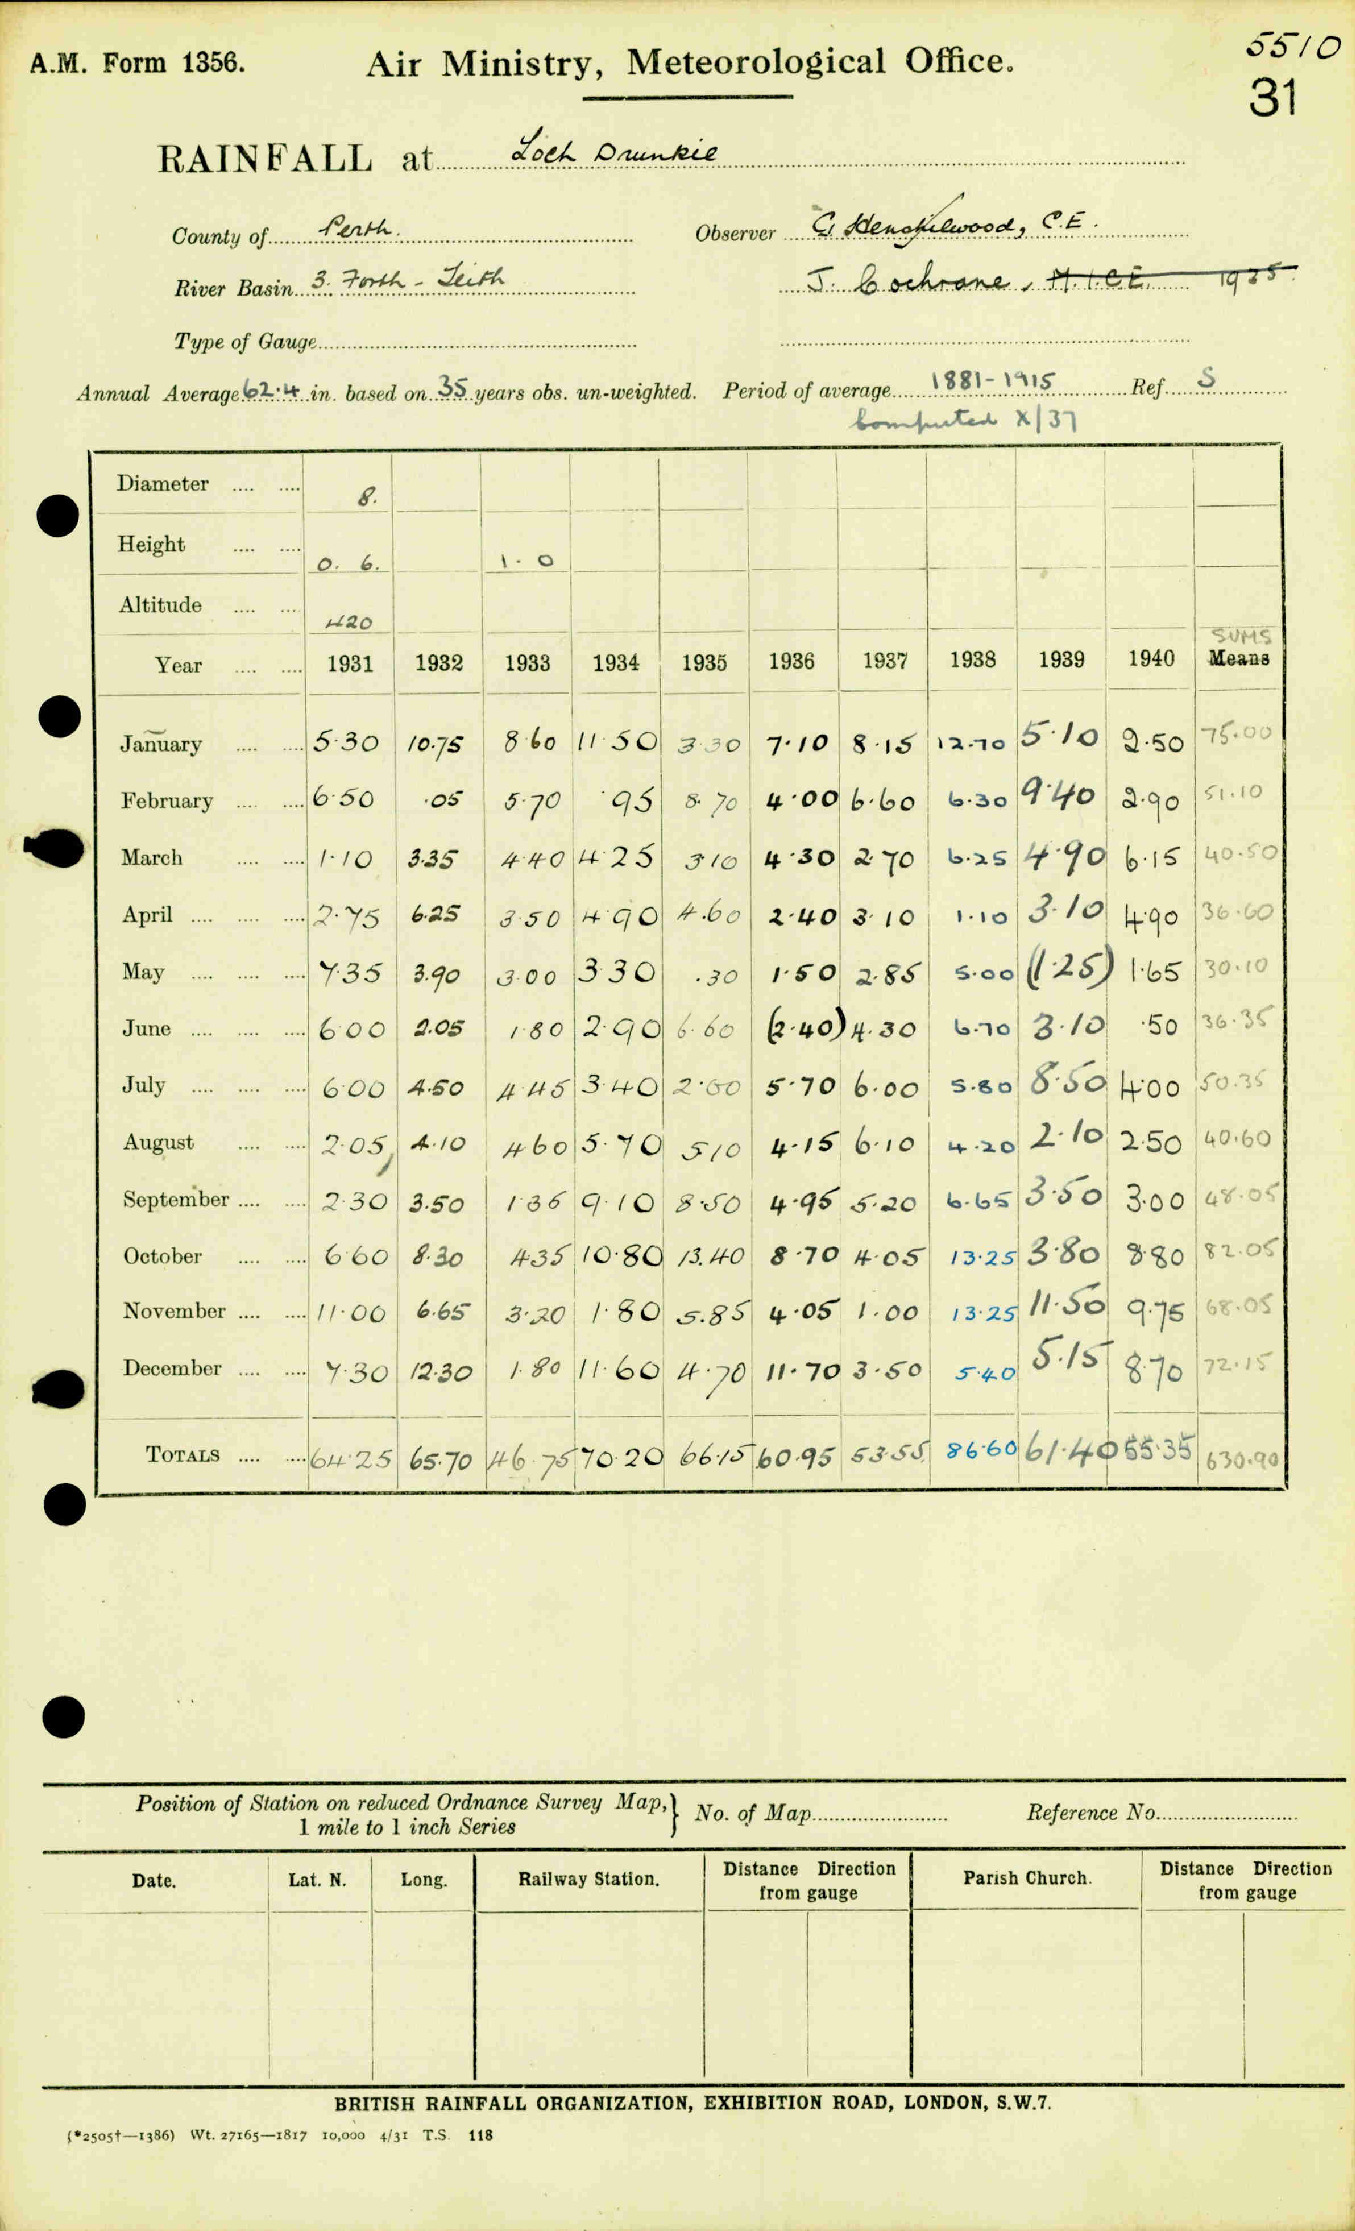 5510
A.M. Form 1356. Air Ministry, Meteorological Office.
31
RAINFALL at Loch Drunkie
County of Perth. Observer C. Henshilwood, C.E.
River Basin 3. Forth - Leith J. Cochrane, M.I.C.E. 1935
Type of Gauge
Annual Average 62.4 in. based on 35 years obs. un-weighted. Period of average 1881-1915 Ref. S
Computed X/37
Diameter .... .... 8.
Height .... .... 0. 6. 1. 0
Altitude .... .... 420
SUMS
Year .... .... 1931 1932 1933 1934 1935 1936 1937 1938 1939 1940 Means
January .... .... 5.30 10.75 8.60 11.50 3.30 7.10 8.15 12.70 5.10 2.50 75.00
February .... .... 6.50 .05 5.70 .95 8.70 4.00 6.60 6.30 9.40 2.90 51.10
March .... .... 1.10 3.35 4.40 4.25 3.10 4.30 2.70 6.25 4.90 6.15 40.50
April .... .... .... 2.75 6.25 3.50 4.90 4.60 2.40 3.10 1.10 3.10 4.90 36.60
May .... .... .... 7.35 3.90 3.00 3.30 .30 1.50 2.85 5.00 (1.25) 1.65 30.10
June .... .... .... 6.00 2.05 1.80 2.90 6.60 (2.40) 4.30 6.70 3.10 .50 36.35
July .... .... .... 6.00 4.50 4.45 3.40 2.00 5.70 6.00 5.80 8.50 4.00 50.35
August .... .... 2.05 4.10 4.60 5.70 5.10 4.15 6.10 4.20 2.10 2.50 40.60
September .... .... 2.30 3.50 1.35 9.10 8.50 4.95 5.20 6.65 3.50 3.00 48.05
October .... .... 6.60 8.30 4.35 10.80 13.40 8.70 4.05 13.25 3.80 8.80 82.05
November .... .... 11.00 6.65 3.20 1.80 5.85 4.05 1.00 13.25 11.50 9.75 68.05
December .... .... 7.30 12.30 1.80 11.60 4.70 11.70 3.50 5.40 5.15 8.70 72.15
TOTALS .... .... 64.25 65.70 46.75 70.20 66.15 60.95 53.55 86.60 61.40 55.35 630.90
Position of Station on reduced Ordnance Survey Map, } No. of Map Reference No.
1 mile to 1 inch Series
Date. Lat. N. Long. Railway Station. Distance Direction Parish Church. Distance Direction
from gauge from gauge
BRITISH RAINFALL ORGANIZATION, EXHIBITION ROAD, LONDON, S.W.7.
(*2505†—1386) Wt. 27165—1817 10,000 4/31 T.S. 118